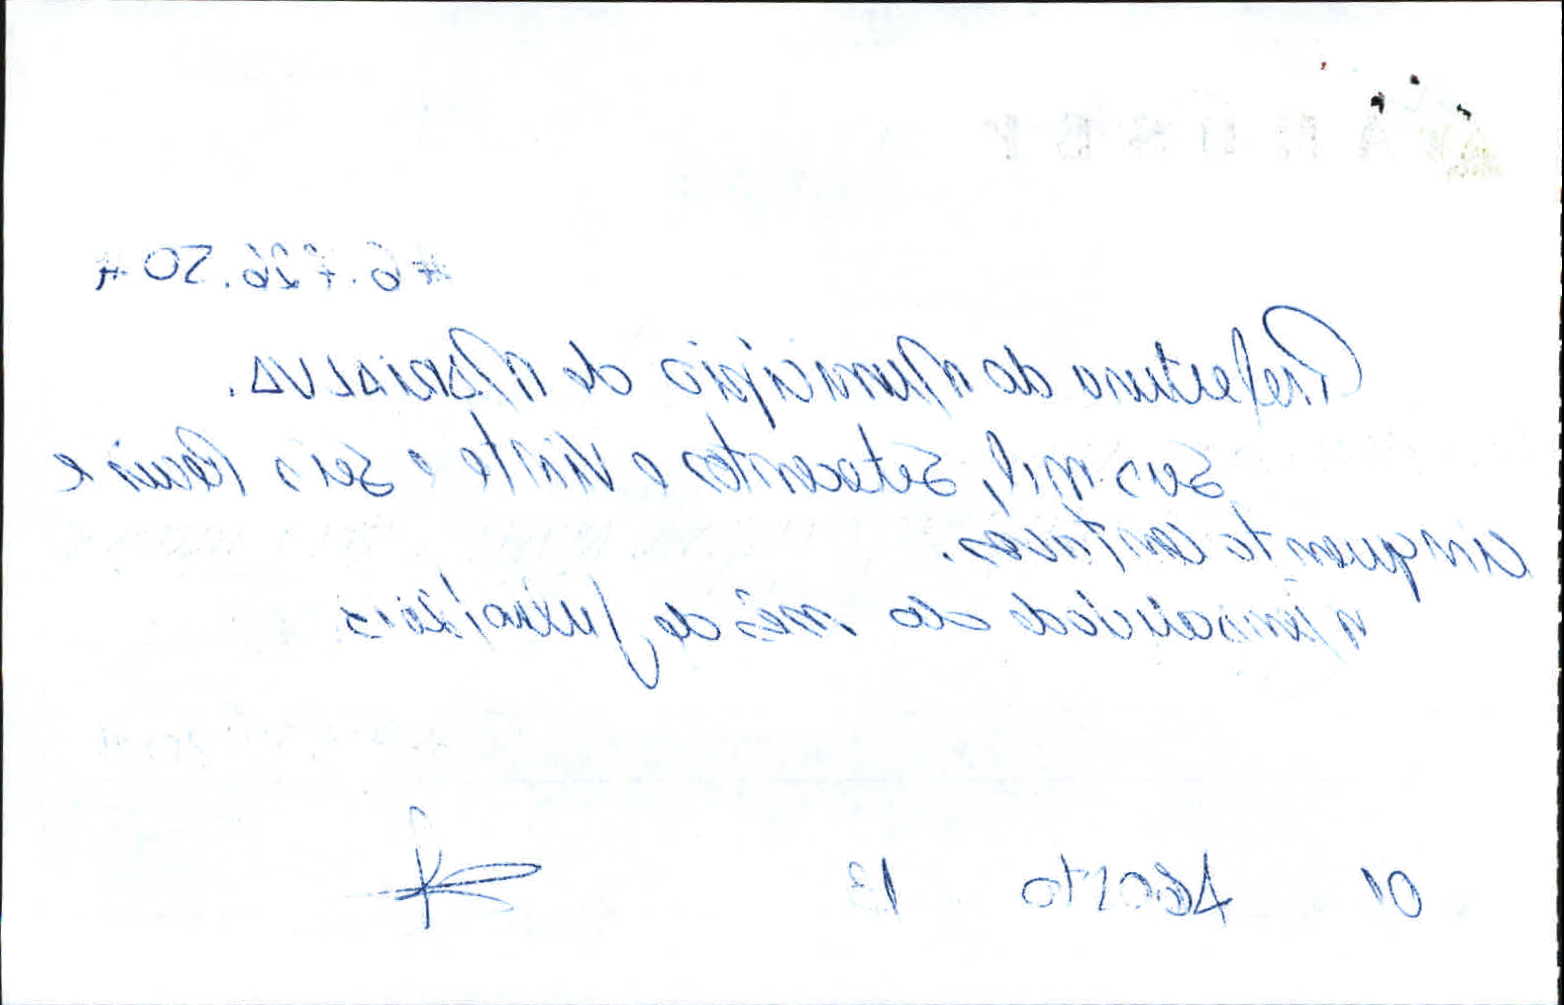 #6.726.50#
Prefeitura do Município de Marialva.
Seis mil, setecentos e vinte e seis reais e
cinquenta centavos.
Mensalidade do mês de Julho/2013
01 Agosto 13